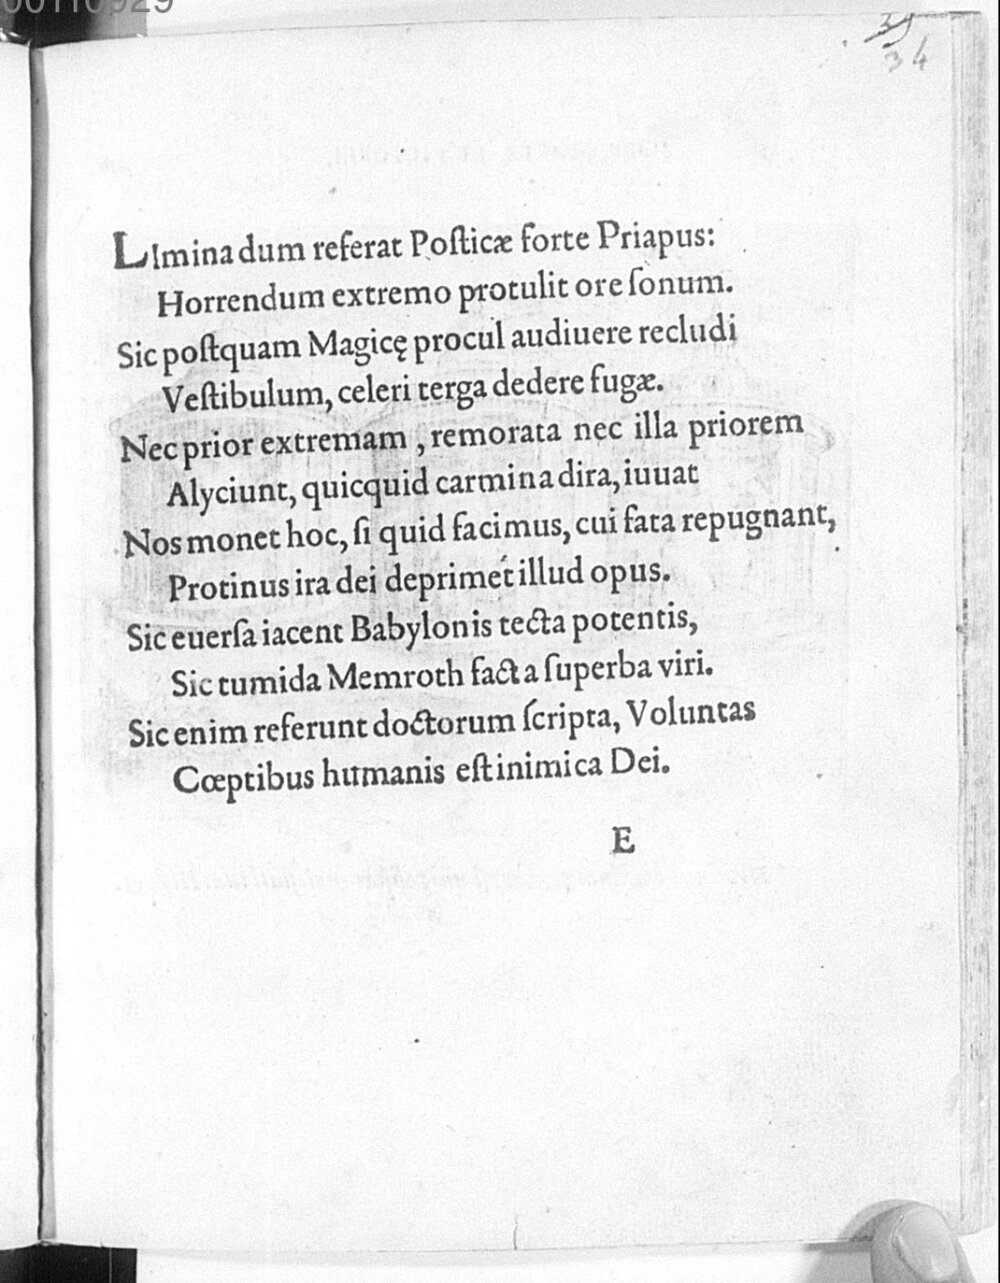 34
LImina dum referat Poſticæ forte Priapus:
Horrendum extremo protulit ore ſonum.
Sic poſtquam Magicę procul audiuere recludi
Veſtibulum, celeri terga dedere fugæ.
Nec prior extremam , remorata nec illa priorem
Alyciunt, quicquid carmina dira, iuuat
Nos monet hoc, ſi quid facimus, cui fata repugnant,
Protinus ira dei deprimet illud opus.
Sic euerſa iacent Babylonis tecta potentis,
Sic tumida Memroth facta ſuperba viri.
Sic enim referunt doctorum ſcripta, Voluntas
Cœptibus humanis eſt inimica Dei.
E